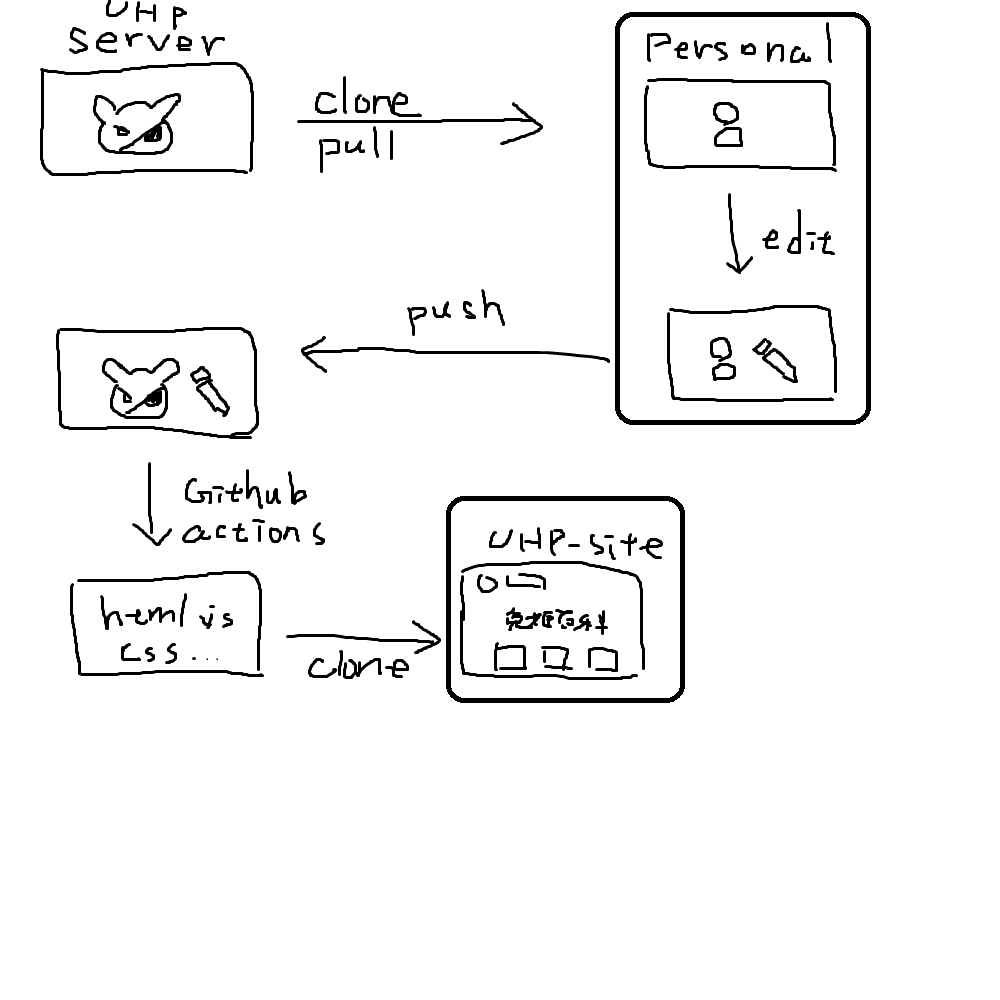 UHP
server
clone
pull
Personal
edit
push
Github
actions
html js
css...
clone
UHP-site